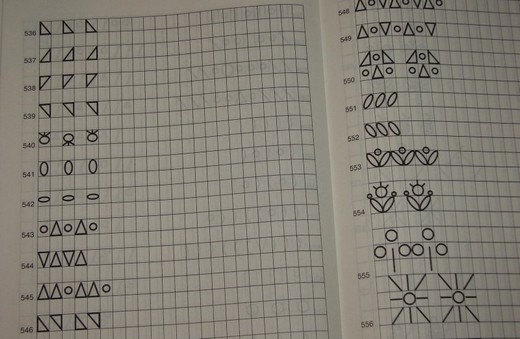 536
537
538
539
540
541
542
543
544
545
546
548
549
550
551
552
553
554
555
556